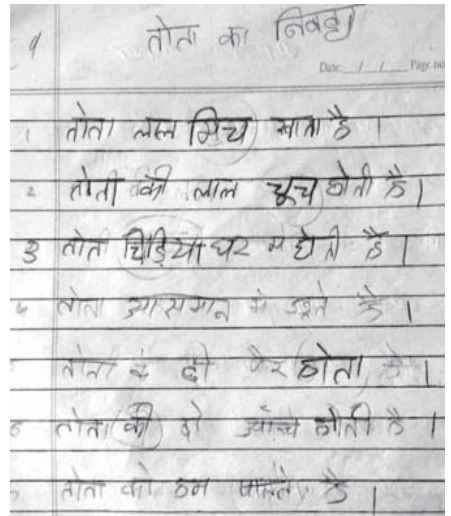 9 तोता का निवहा
Date: / / Page no
1 तोता लाल मिच खाता है ।
2 तोती की लाल चूच होती है ।
3 तोता चिड़िया घर मे होती है ।
4 तोता आसमान मे उड़ते है ।
तोता के दो पैर होता है ।
6 तोता की दो आँखे होती है ।
7 तोता को हम पालते है ।